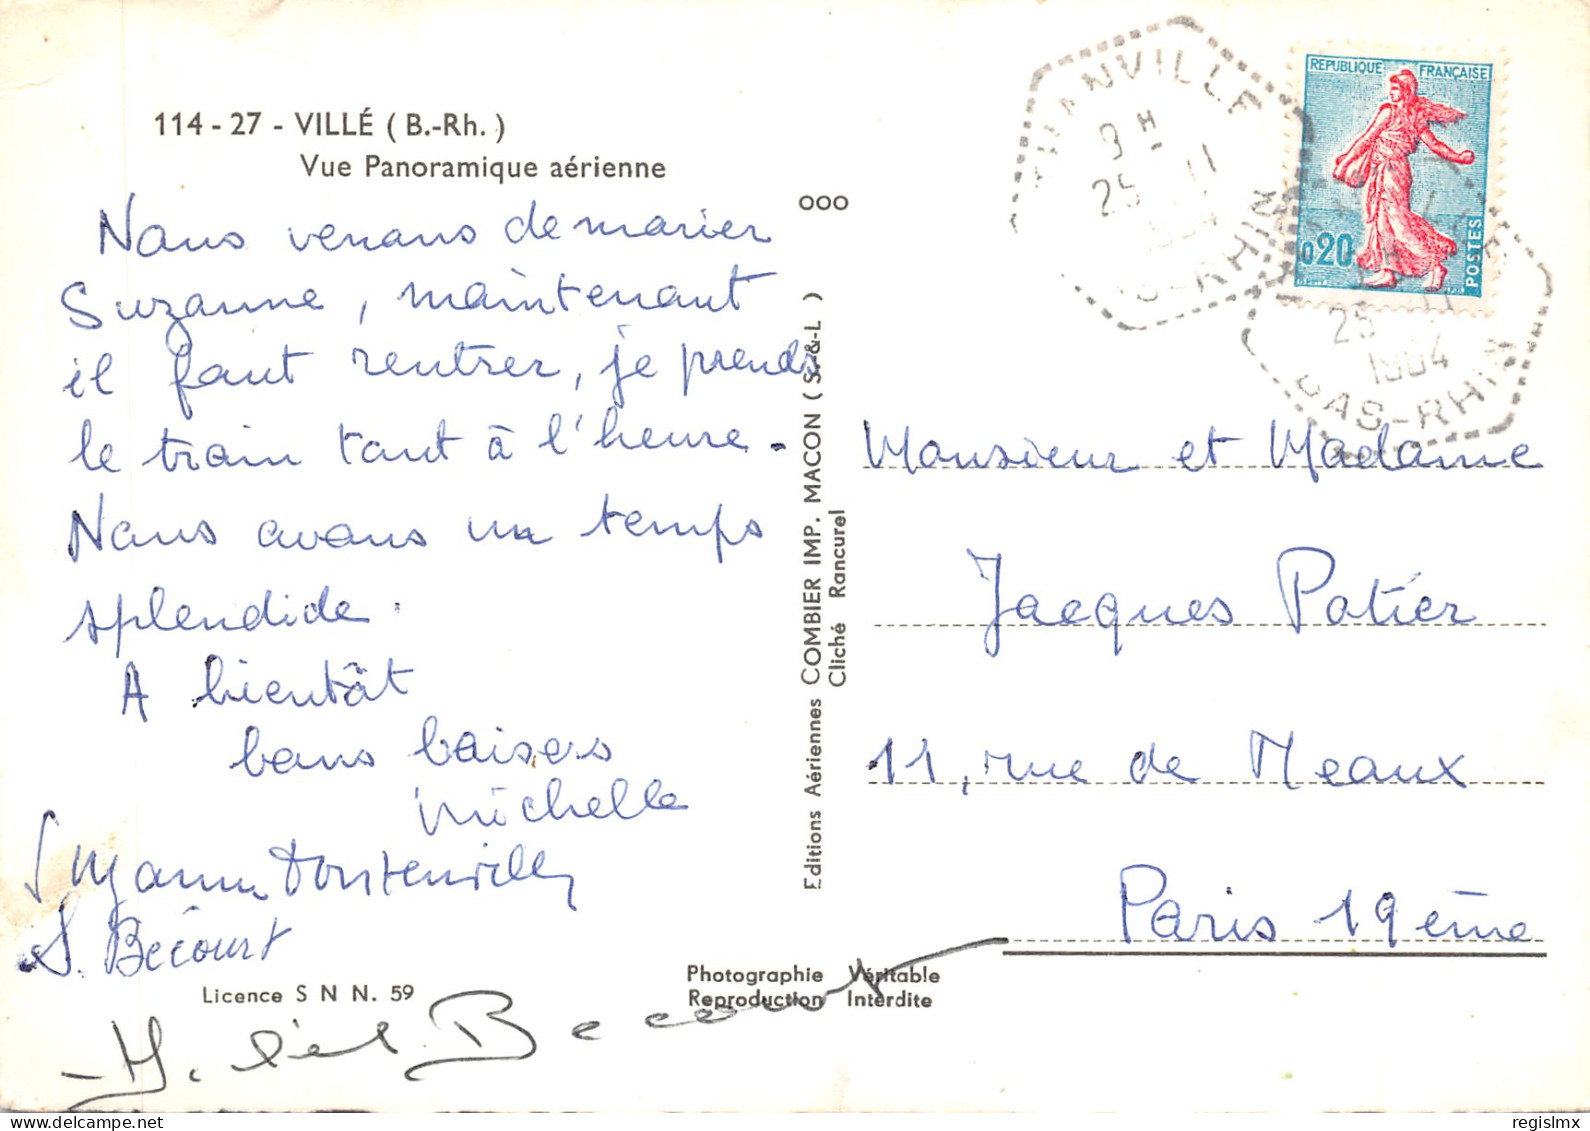 114 - 27 - VILLÉ ( B.-Rh. )
Vue Panoramique aérienne
Nous venons de marier
Suzanne, maintenant
il faut rentrer, je prends
le train tout à l'heure.
Nous avons un temps
splendide.
A bientôt
bons baisers
Michelle
S. Becourt
Becourt
Licence S N N. 59
Photographie Véritable
Reproduction Interdite
Editions Aériennes COMBIER IMP. MACON ( S.-&-L )
Cliché Rancurel
OOO
THANVILLE
9 H
25 11
BAS-RHIN
REPUBLIQUE FRANÇAISE
0,20
POSTES
25 11
1964
BAS-RHIN
Monsieur et Madame
Jacques Potier
11, rue de Meaux
Paris 19ème
regislmx